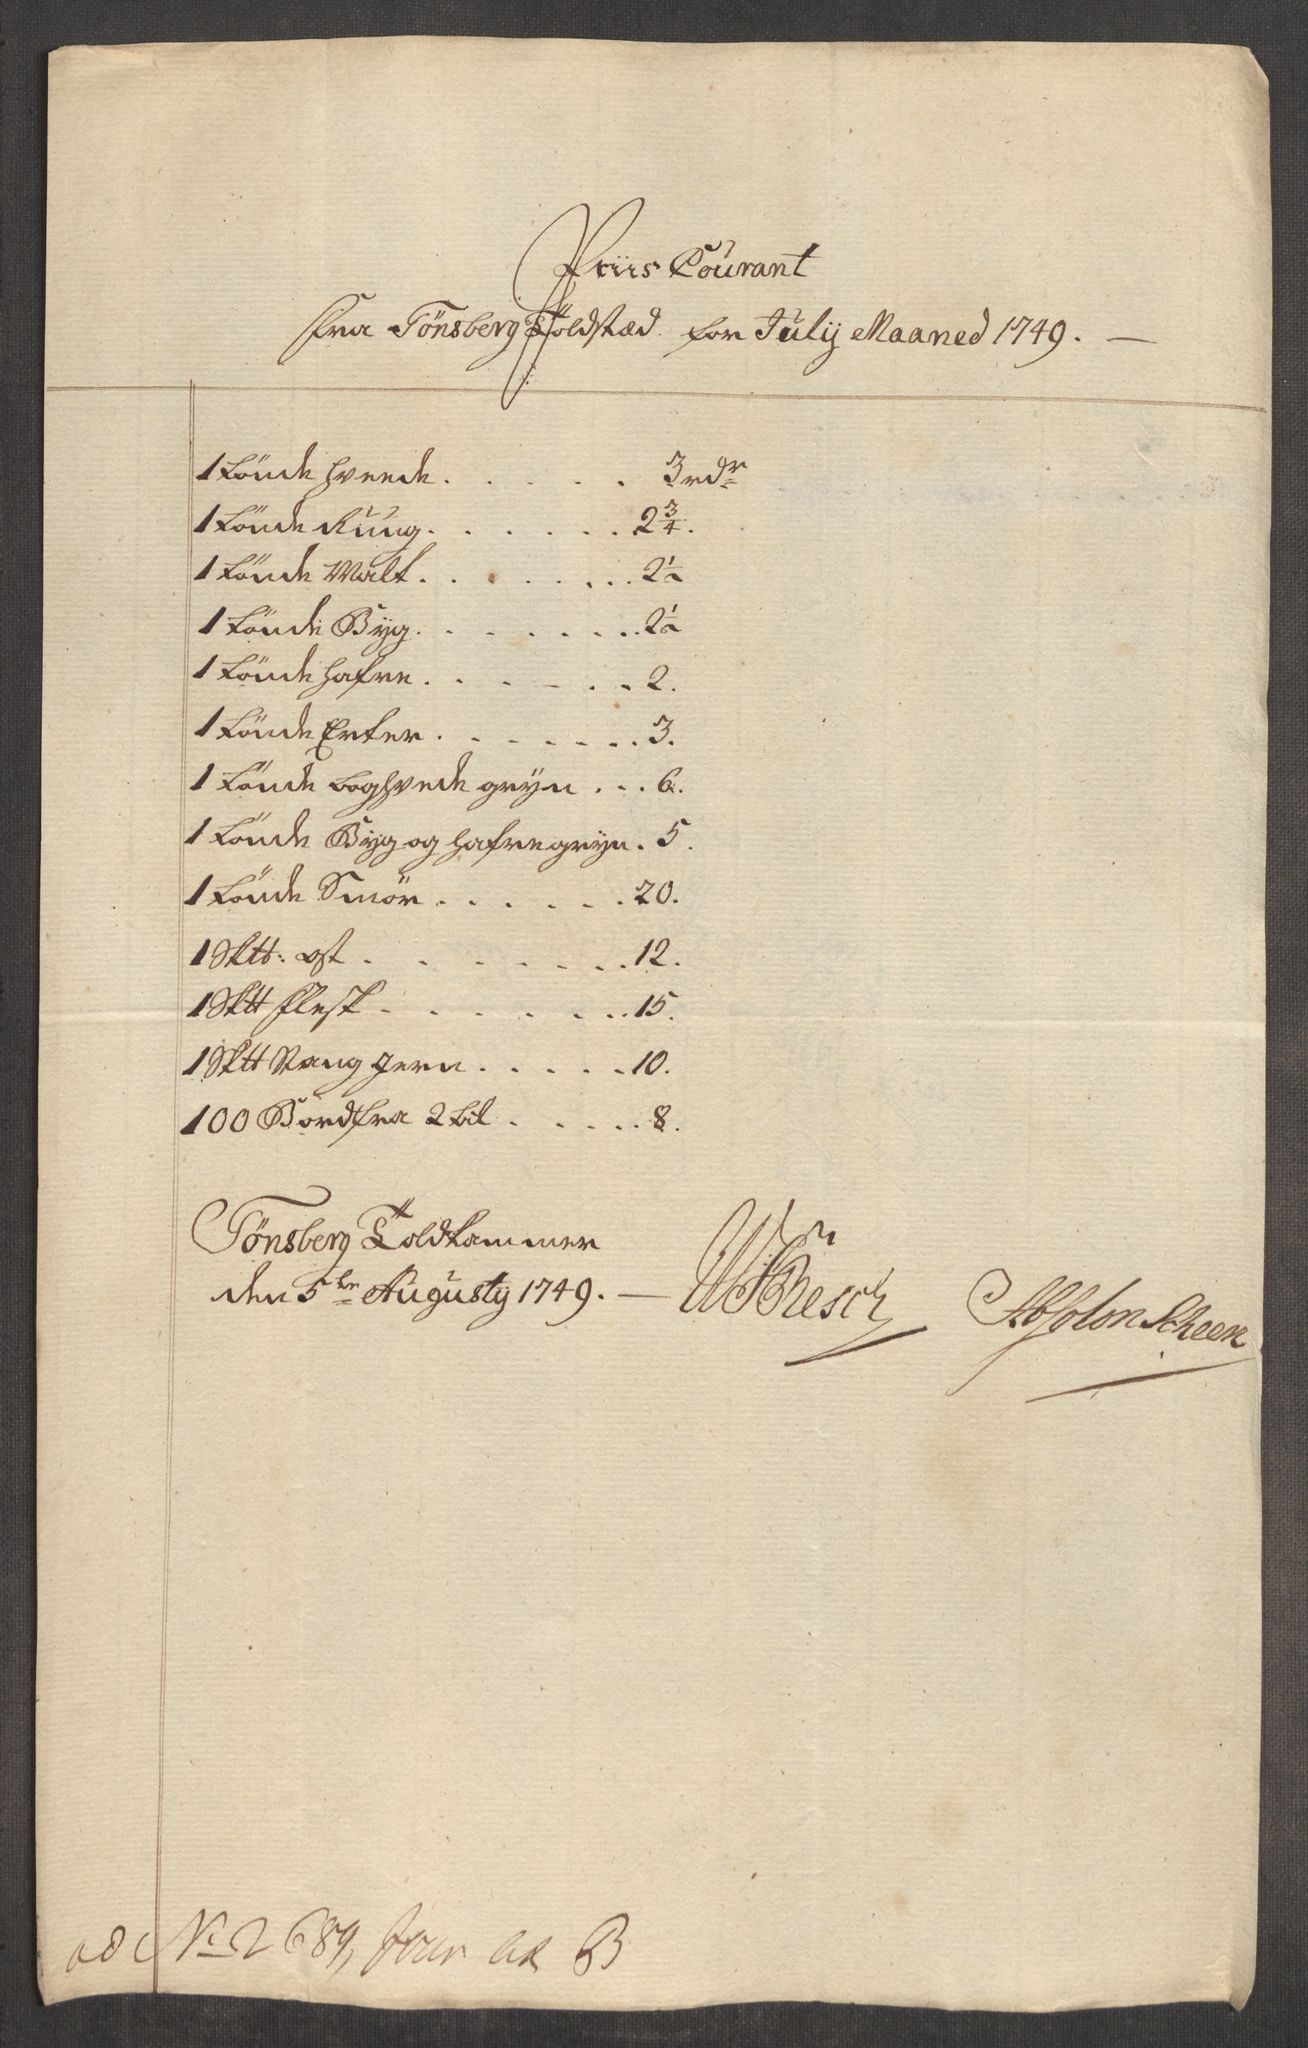 Priis Courant
fra Tönsberg Toldstæd for July Maaned 1749. —
1 tönde hveede . . . . . 3 rdr
1 tönde Rüüg . . . . . . 2 3/4.
1 tönde Malt . . . . . . 2 1/2
1 tönde Byg . . . . . . . 2 1/2
1 tönde hafre . . . . . . 2.
1 tönde Erter . . . . . . . 3.
1 tönde boghvede gryn . . . 6.
1 tönde Byg og hafre gryn . 5.
1 tönde Smör . . . . . . 20.
1 Sktt: ost . . . . . . . 12.
1 Sktt flesk . . . . . . . 15.
1 Sktt Stang jern . . . . . 10.
100 Bord fra 2 til . . . . . 8.
Tönsberg Toldkammer
den 5te Augusty 1749. —
Absolon Scheen
ad No 2689, B